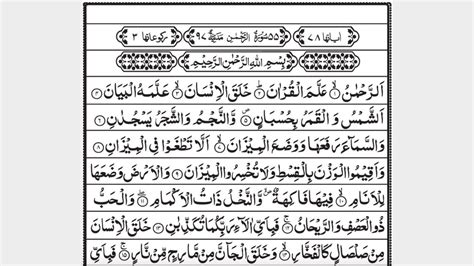 اٰیاتها ٧٨ ٥٥ سُوْرَةُ الرَّحْمٰنِ مَدَنِيَّةٌ ٩٧ رکوعاتها ٣
بِسْمِ اللّٰهِ الرَّحْمٰنِ الرَّحِيْمِ
اَلرَّحْمٰنُ ۙ﴿١﴾ عَلَّمَ الْقُرْاٰنَ ؕ﴿٢﴾ خَلَقَ الْاِنْسَانَ ۙ﴿٣﴾ عَلَّمَهُ الْبَيَانَ ﴿٤﴾
اَلشَّمْسُ وَ الْقَمَرُ بِحُسْبَانٍ ۪﴿٥﴾ وَّ النَّجْمُ وَ الشَّجَرُ يَسْجُدٰنِ ﴿٦﴾
وَ السَّمَآءَ رَفَعَهَا وَ وَضَعَ الْمِيْزَانَ ۙ﴿٧﴾ اَلَّا تَطْغَوْا فِي الْمِيْزَانِ ﴿٨﴾
وَ اَقِيْمُوا الْوَزْنَ بِالْقِسْطِ وَ لَا تُخْسِرُوا الْمِيْزَانَ ﴿٩﴾ وَ الْاَرْضَ وَضَعَهَا
لِلْاَنَامِ ۙ﴿١٠﴾ فِيْهَا فَاكِهَةٌ ۪ۙ وَّ النَّخْلُ ذَاتُ الْاَكْمَامِ ۖ﴿١١﴾ وَ الْحَبُّ
ذُو الْعَصْفِ وَ الرَّيْحَانُ ۚ﴿١٢﴾ فَبِاَيِّ اٰلَآءِ رَبِّكُمَا تُكَذِّبٰنِ ﴿١٣﴾ خَلَقَ الْاِنْسَانَ
مِنْ صَلْصَالٍ كَالْفَخَّارِ ۙ﴿١٤﴾ وَ خَلَقَ الْجَآنَّ مِنْ مَّارِجٍ مِّنْ نَّارٍ ۚ﴿١٥﴾ فَبِاَيِّ